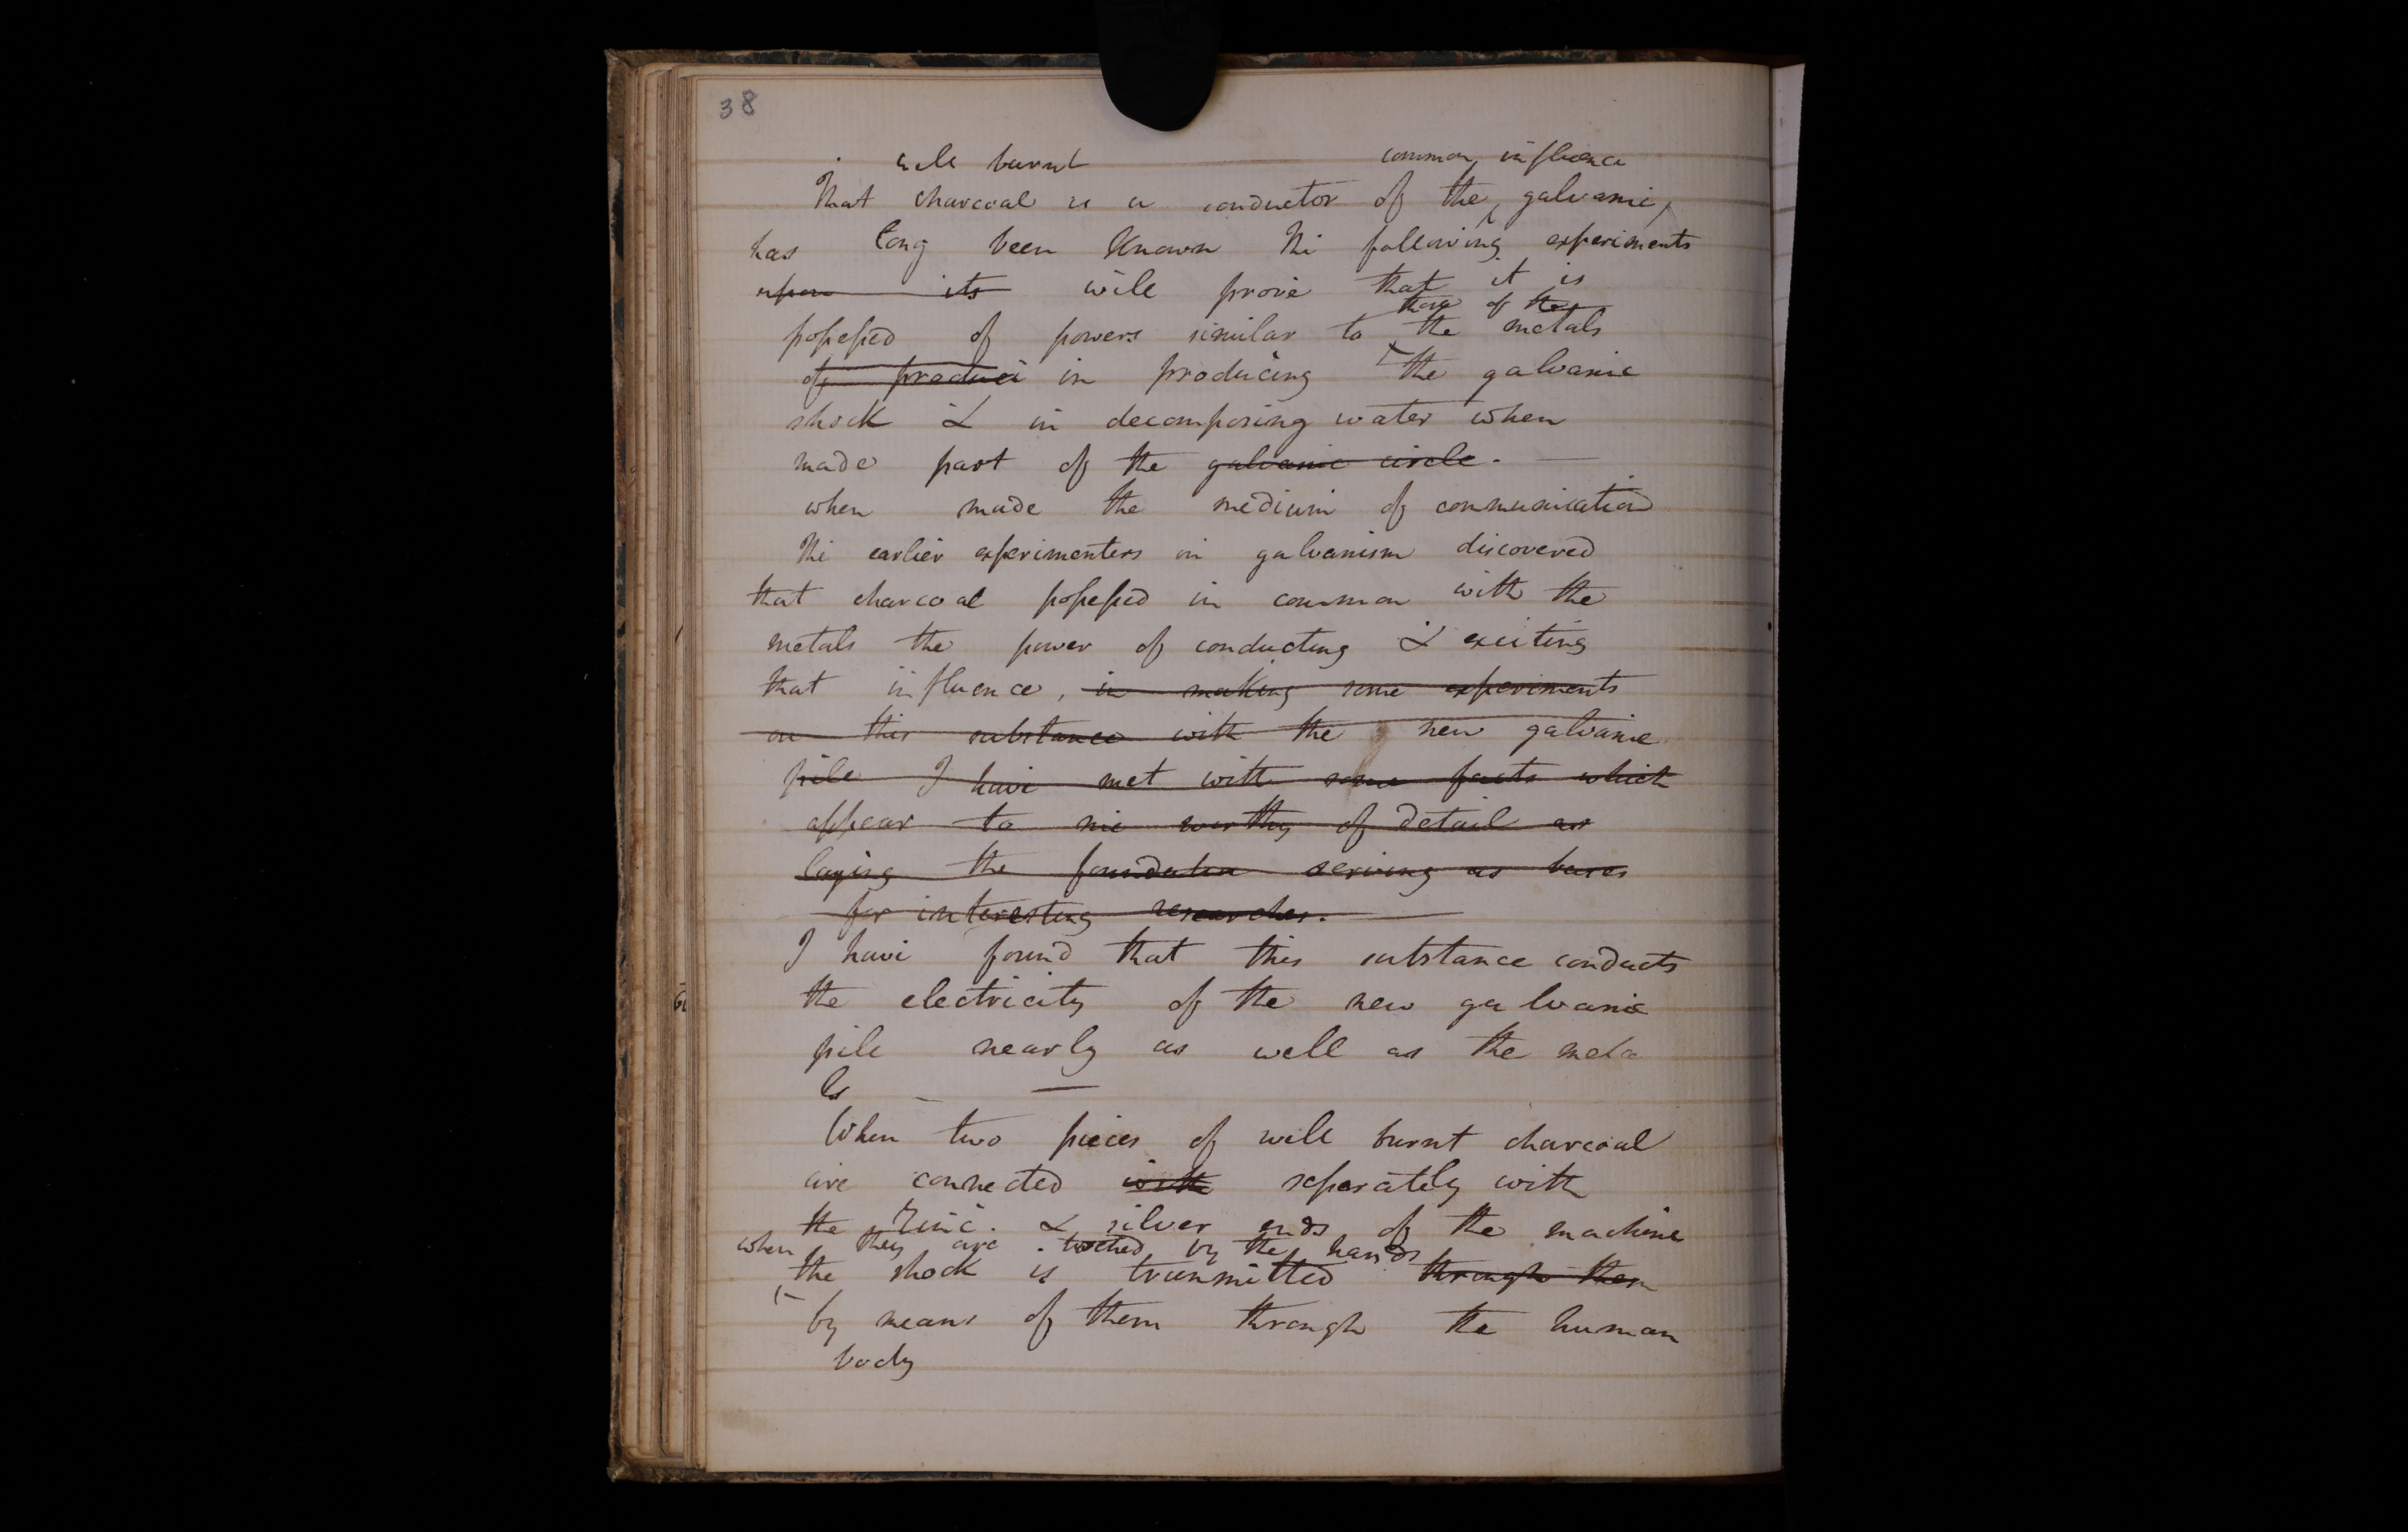 38
well burnt common influence
That charcoal is a conductor of the galvanic
has long been known The following experiments
upon its will prove that it is
those of the
possessed of powers similar to the metals
of produci in producing the galvanic
shock & in decomposing water when
made part of the galvanic circle. —
when made the medium of communication
The earlier experimenters in galvanism discovered
that charcoal possessed in common with the
metals the power of conducting & exciting
that influence, in making some experiments
on this substance with the new galvanic
pile I have met with some facts which
appear to me worthy of detail as
laying the foundation serving as bases
for interesting researches. —
I have found that this substance conducts
the electricity of the new galvanic
pile nearly as well as the meta
ls —
When two pieces of well burnt charcoal
are connected with separately with
the Zinc. & silver ends of the machine
when they are touched by the hands
the shock is transmitted through them
by means of them through the human
body